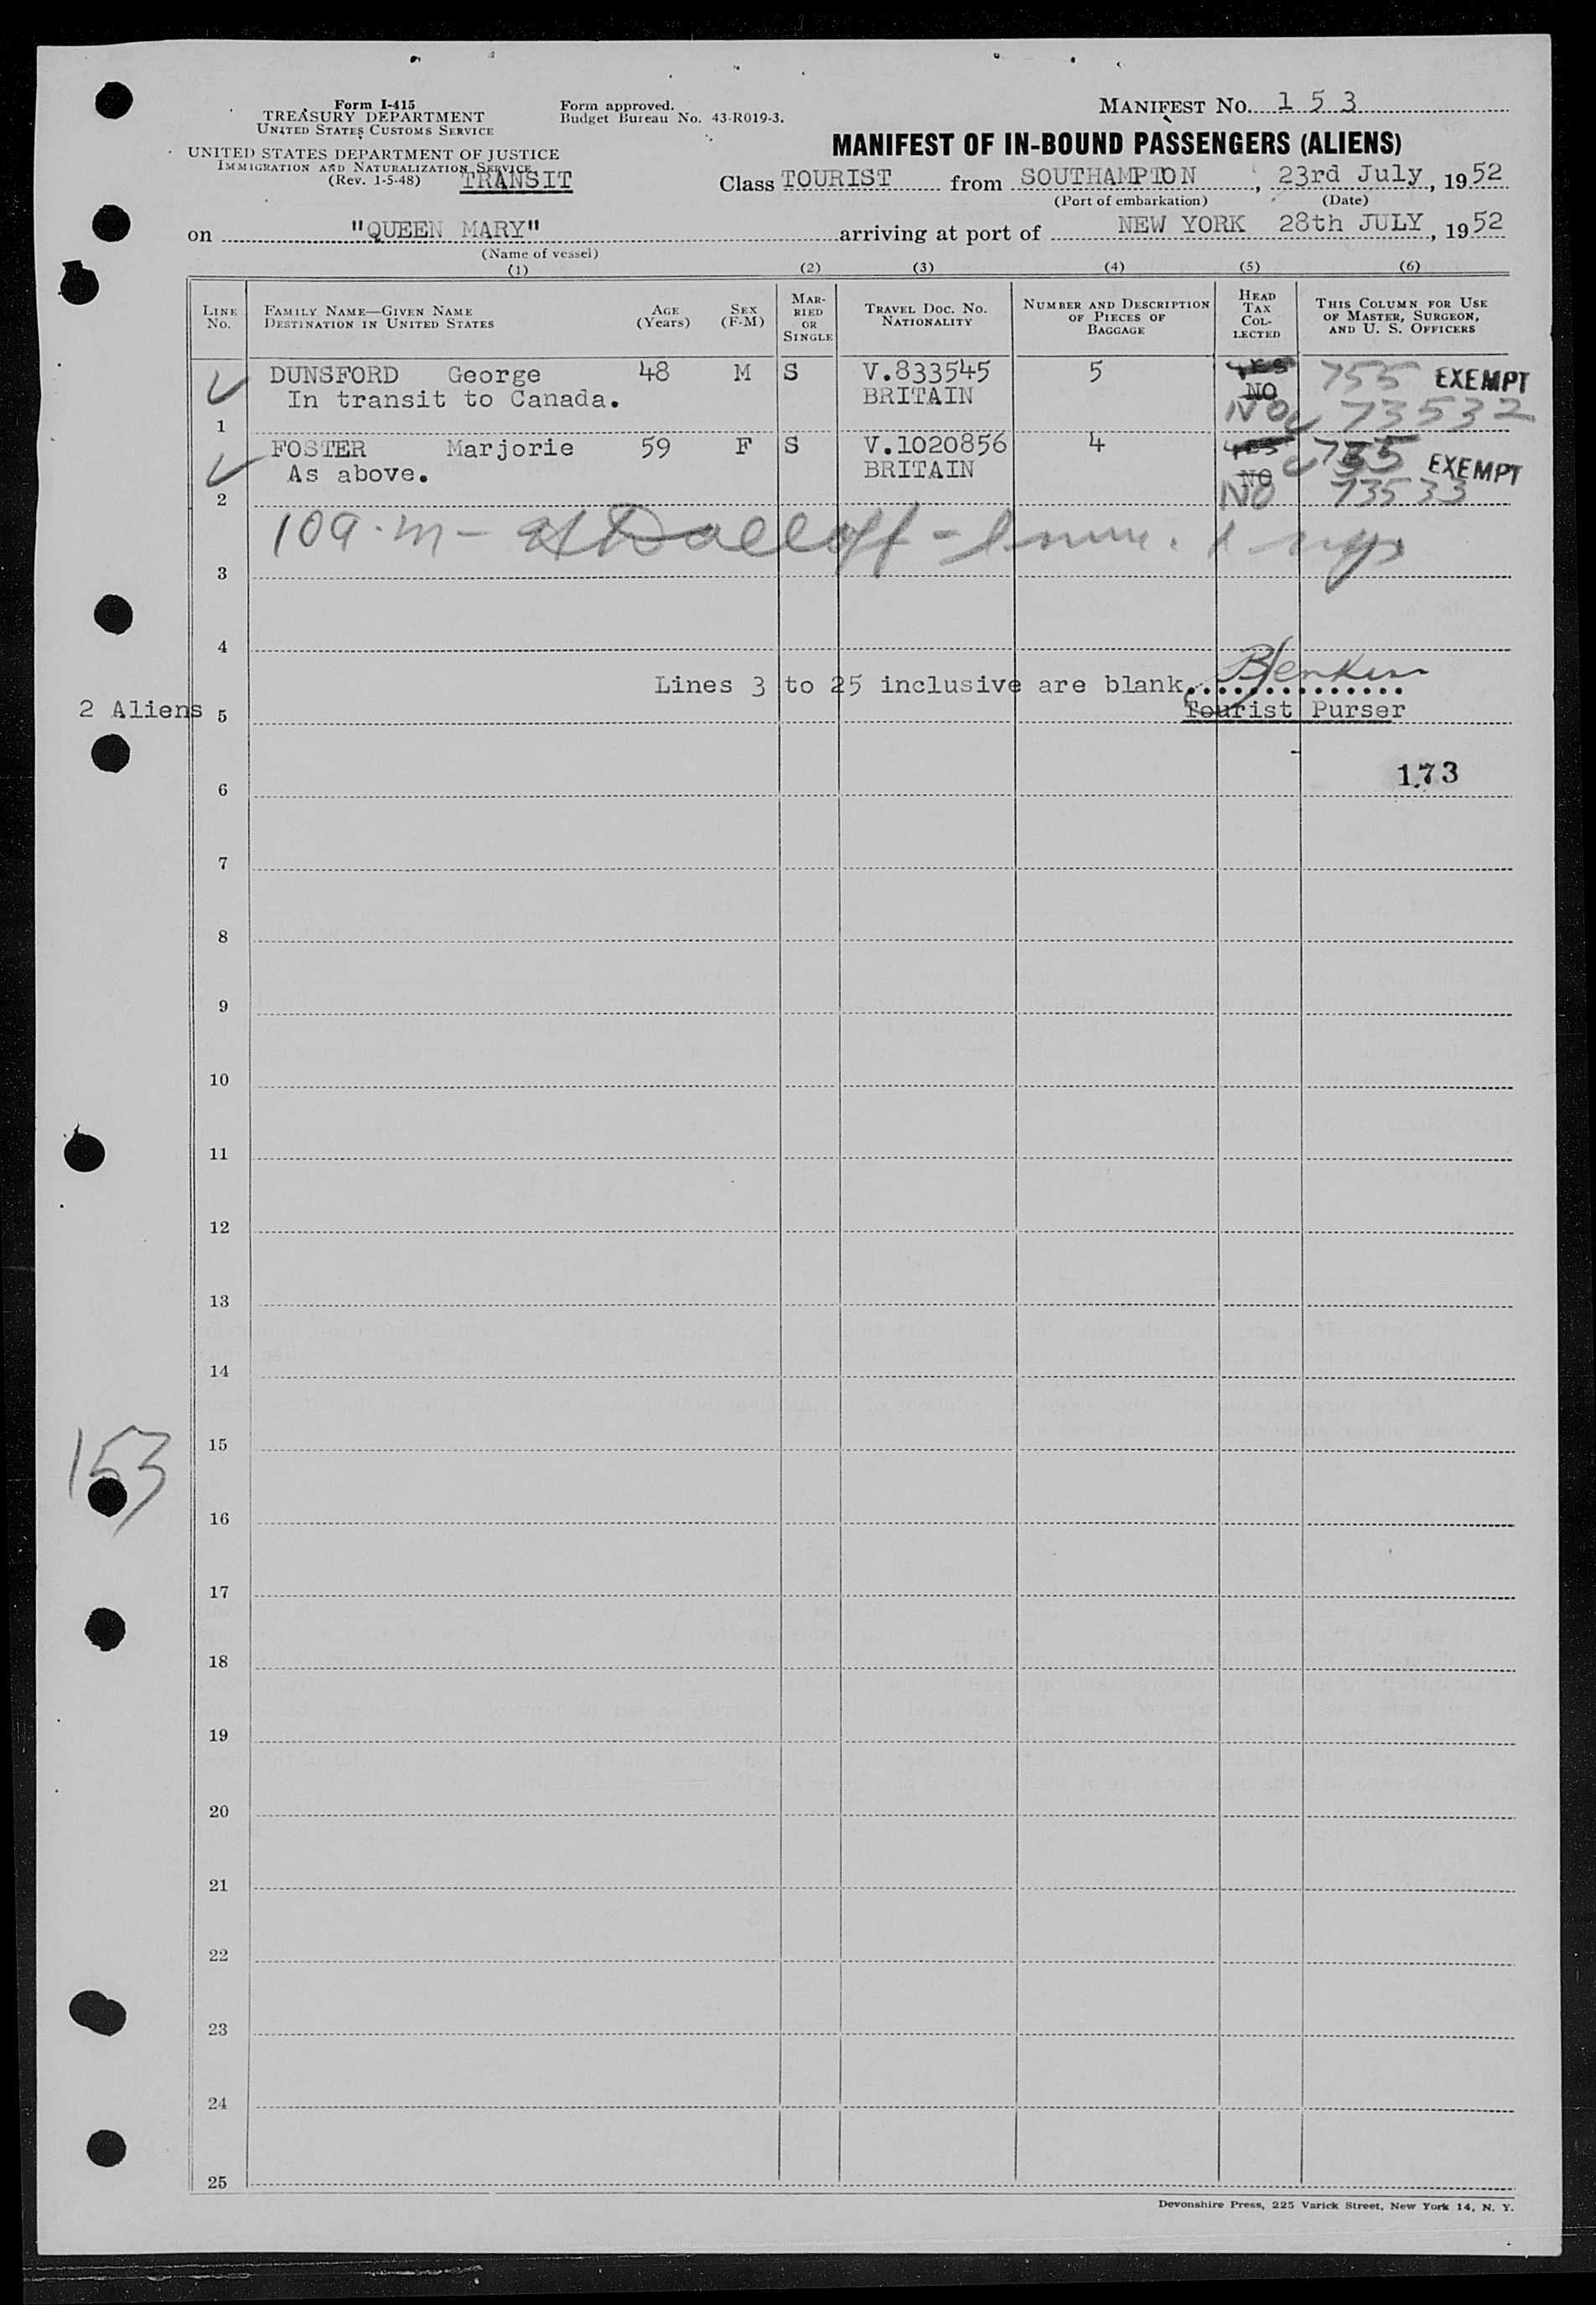 Form I-415
TREASURY DEPARTMENT
UNITED STATES CUSTOMS SERVICE
Form approved.
Budget Bureau No. 43-R019-3.
MANIFEST NO. 153
UNITED STATES DEPARTMENT OF JUSTICE
IMMIGRATION AND NATURALIZATION SERVICE
(Rev. 1-5-48) TRANSIT
MANIFEST OF IN-BOUND PASSENGERS (ALIENS)
Class TOURIST from SOUTHAMPTON, 23rd July, 1952
(Port of embarkation) (Date)
on "QUEEN MARY" arriving at port of NEW YORK 28th JULY, 1952
(Name of vessel)
(1) (2) (3) (4) (5) (6)
LINE No. FAMILY NAME—GIVEN NAME DESTINATION IN UNITED STATES AGE (Years) SEX (F-M) MARRIED OR SINGLE TRAVEL DOC. NO. NATIONALITY NUMBER AND DESCRIPTION OF PIECES OF BAGGAGE HEAD TAX COLLECTED THIS COLUMN FOR USE OF MASTER, SURGEON, AND U. S. OFFICERS
DUNSFORD George 48 M S V.833545 5 YES 755 EXEMPT
In transit to Canada. BRITAIN NO
1 NO 73532
FOSTER Marjorie 59 F S V.1020856 4 YES 755 EXEMPT
As above. BRITAIN NO
2 NO 73533
109.m
3
4
Lines 3 to 25 inclusive are blank
2 Aliens 5 Tourist Purser
173
6
7
8
9
10
11
12
13
14
153
15
16
17
18
19
20
21
22
23
24
25
Devonshire Press, 225 Varick Street, New York 14, N. Y.